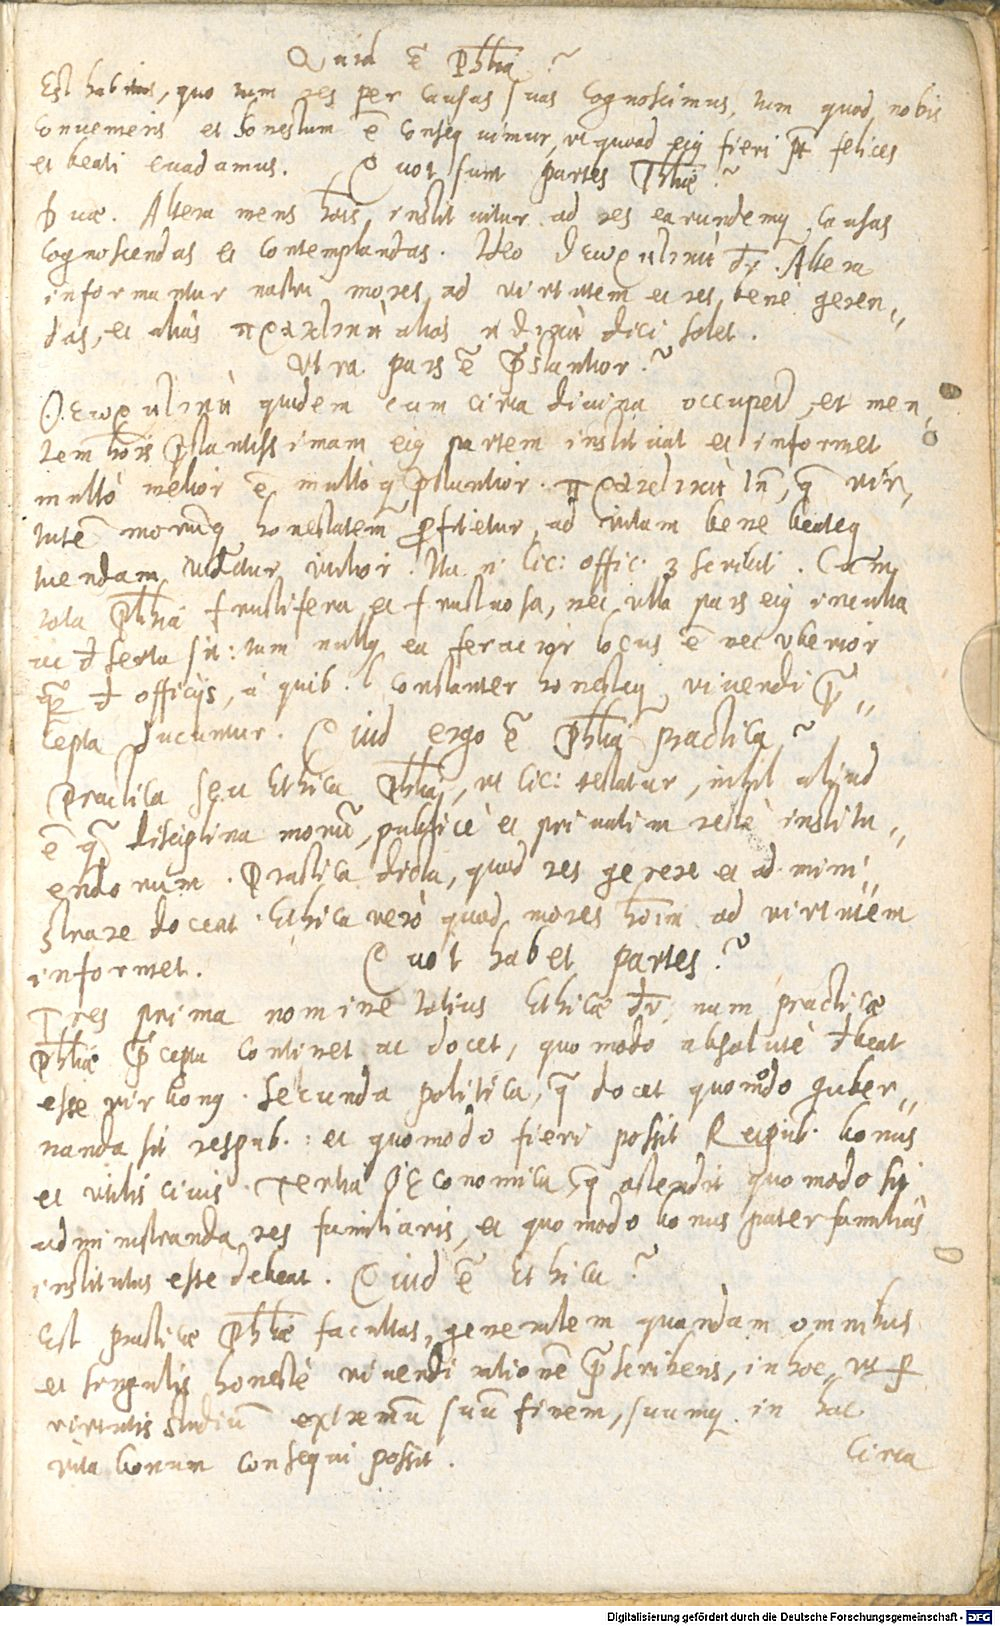 Quid ē Phia?
Est habitus, quo tum res per causas suas cognoscimus, tum quod nobis
conveniens et honestum ē consequimur, ut quoad eiꝯ fieri pt felices
et beati evadamus. Quot sunt partes Phiæ?
Duæ. Altera mens hōis, instituitur ad res earundemq causas
cognoscendas et contemplandas. Ideo θεωρητικὴ dr. Altera
informantur nostri mores ad virtutem et res bene geren„
das, et aliàs πρακτικὴ aliàs ηθικὴ dici solet.
Utra pars ē p̄stantior?
Θεωρητικὴ quidem cum circa divina occupet, et men„
tem hōis p̄stantissimam eiꝯ partem instituat et informet
multò melior ē multò q p̄stantior. πρακτικὴ tn̄, q vir„
tutē morumq honestatem ꝓfitetur, ad vitam bene beateq
tuendam videatur utilior. Ita n. Cic: offic: 3 scribit. Cum
tota Phia frustifera et fructuosa, nec ulla pars eiꝯ inculta
ac đserta sit: tum nullꝯ ea feracior locus ē nec uberior
qm đ officijs, à quib. constanter honesteq vivendi p̄„
cepta ducuntur. Quid ergo ē Phia practica?
Practica seu Ethica Phia, ut Cic: testatur, nihil aliud
ē qm disciplina morū, publicè et privatim rectè institu„
endorum. Practica dicta, quod res gerere et admini„
strare doceat. Ethica verò quod mores hōim ad virtutem
informet. Quot habet partes?
Tres prima nomine totius Ethicæ dr, nam practicæ
Phiæ p̄cepta continet ac docet, quomodo absolutè đbeat
esse vir bonꝯ. Secunda politica, q docet quomodo guber„
nanda sit respub.: et quomodo fieri possit Reipub. bonus
et utilis civis. Tertia Œconomica, q ostendit quomodo sit
administranda res familiaris, et quomodo bonus paterfamiliâs
institutus esse debeat. Quid ē Ethica?
Est practicæ Phiæ facultas, generalem quandam omnibus
et singulis honestè vivendi rationē p̄scribens, in hoc, ut ꝑ
virtutis studiū extremū suū finem, suumq in hac
vita bonum consequi possit.
Circa
Digitalisierung gefördert durch die Deutsche Forschungsgemeinschaft - DFG